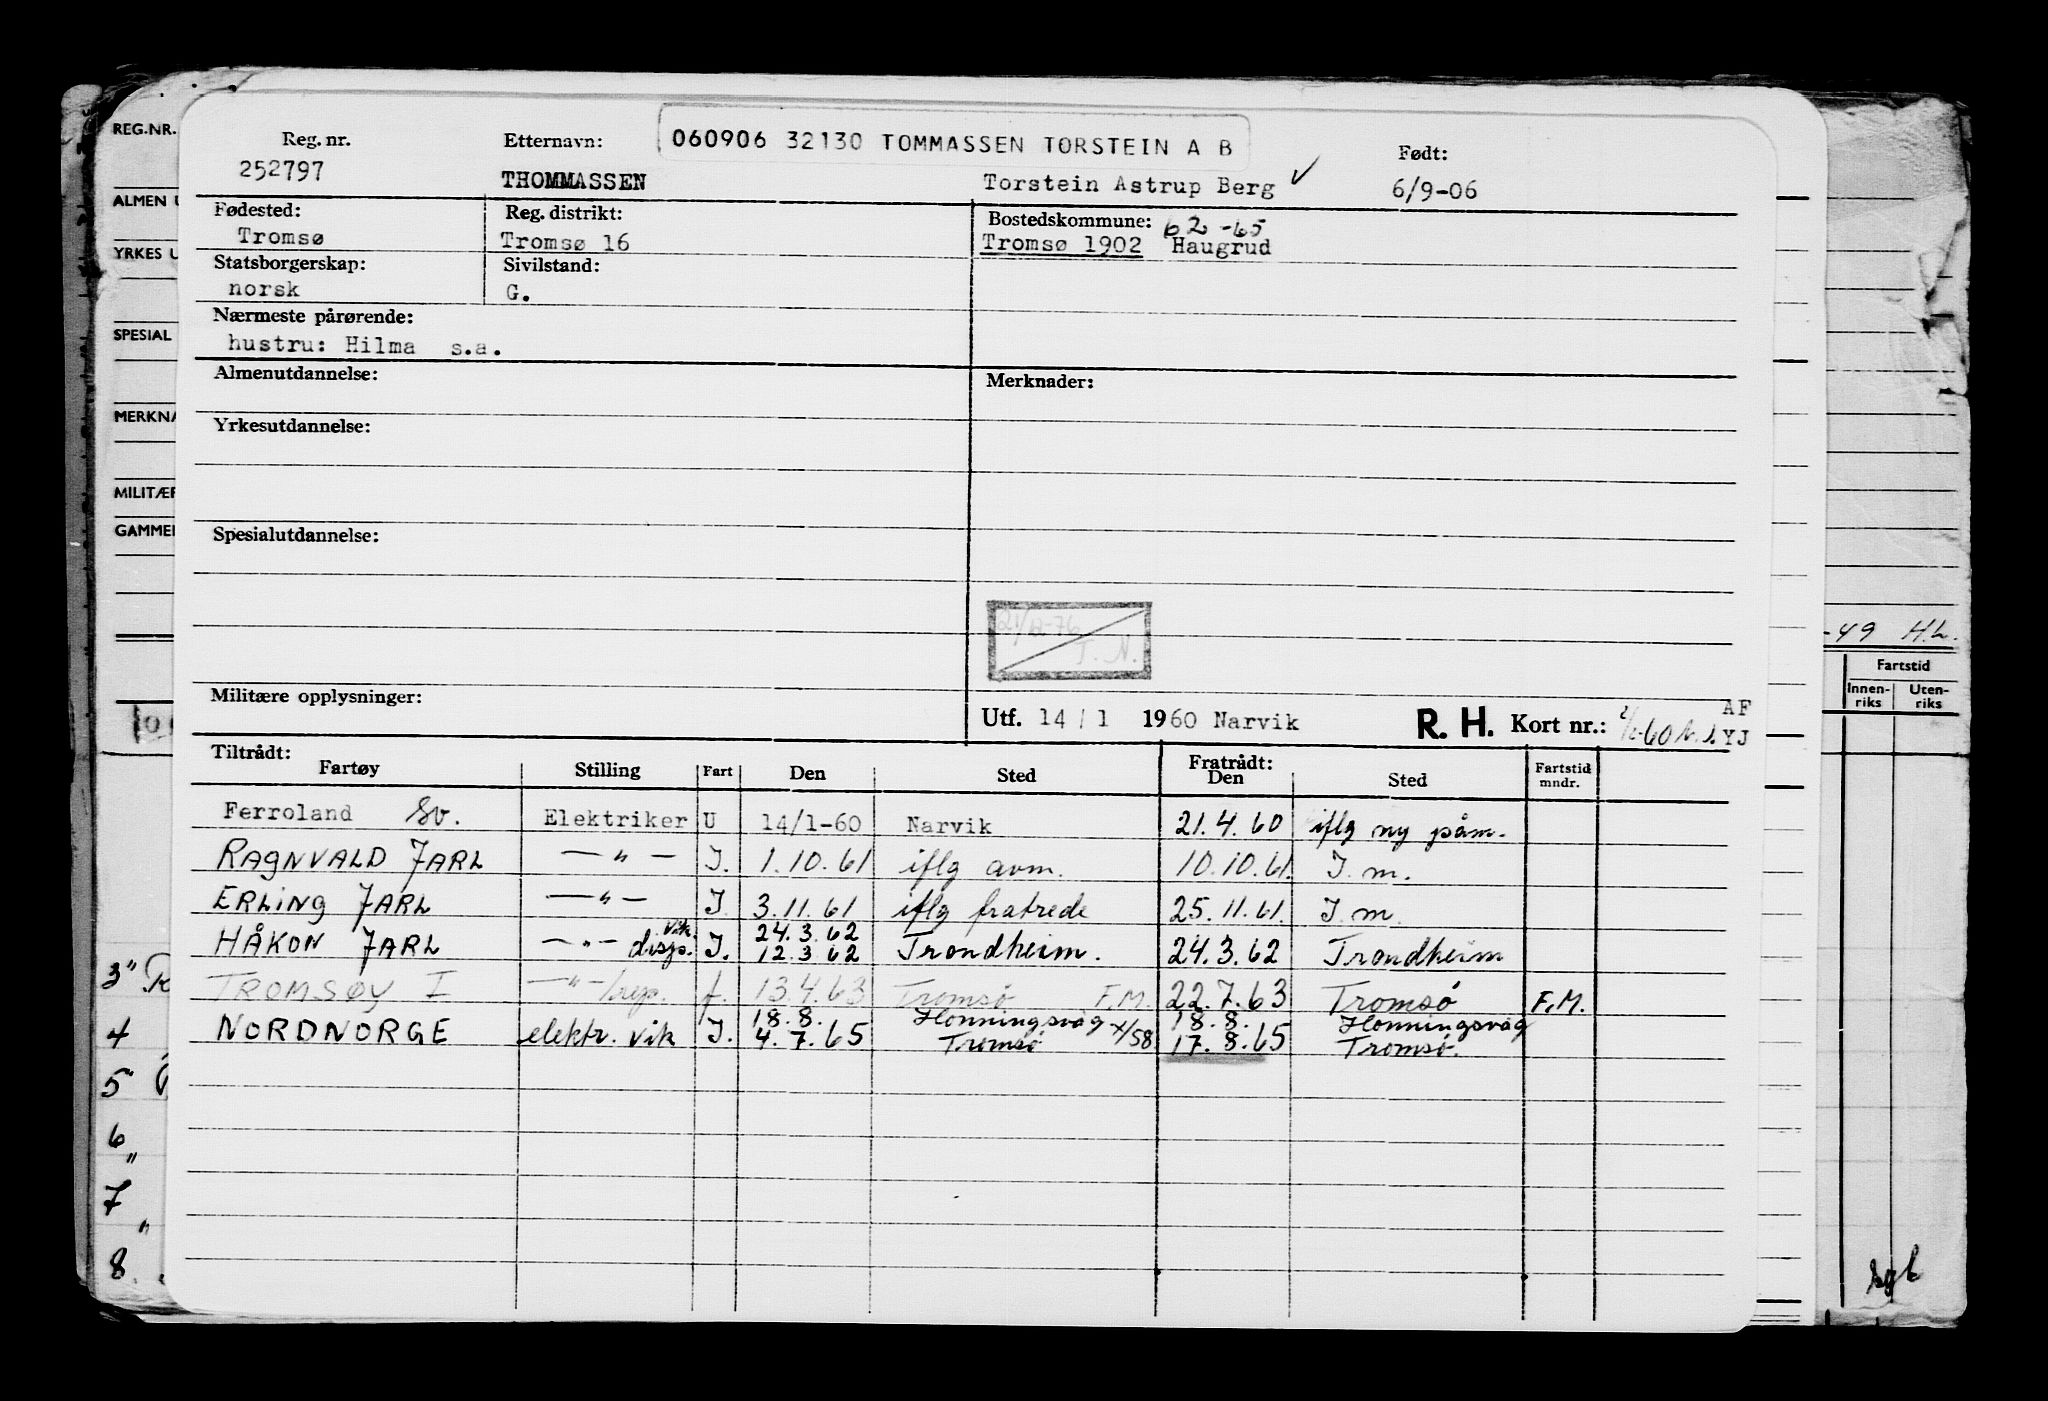 060906 32130 TOMMASSEN TORSTEIN A B
Reg. nr. Etternavn: Født:
252797 THOMMASSEN Torstein Astrup Berg ✓ 6/9-06
Fødested: Reg. distrikt: Bostedskommune: 62-65
Tromsø Tromsø 16 Tromsø 1902 Haugrud
Statsborgerskap: Sivilstand:
norsk G.
Nærmeste pårørende:
hustru: Hilma s.a.
Almenutdannelse: Merknader:
Yrkesutdannelse:
Spesialutdannelse:
21/12-76
T. N.
Militære opplysninger:
Utf. 14/1 1960 Narvik R. H. Kort nr.: AF
YJ
Tiltrådt: Fratrådt:
Fartøy Stilling Fart Den Sted Den Sted Fartstid mndr.
Ferroland Sv. Elektriker U 14/1-60 Narvik 21.4.60 iflg ny påm.
RAGNVALD JARL —"— I. 1.10.61 iflg avm. 10.10.61. I. m.
ERLING JARL —"— I 3.11.61 iflg fratrede 25.11.61. I. m.
vik. 24.3.62
HÅKON JARL —"— disp. I. 12.3.62 Trondheim. 24.3.62 Trondheim
TROMSØY I —"—/rep. f. 13.4.63 Tromsø F.M. 22.7.63 Tromsø F.M.
18.8. Honningsvåg 18.8. Honningsvåg
NORDNORGE elektr. vik I. 4.7.65 Tromsø x/58 17.8.65 Tromsø.
REG.NR.
ALMEN U
YRKES U
SPESIAL
MERKNA
MILITÆR
GAMMEL
3"
4
5"
6"
7"
8.
-49 H.L.
Fartstid
Innen-riks Uten-riks